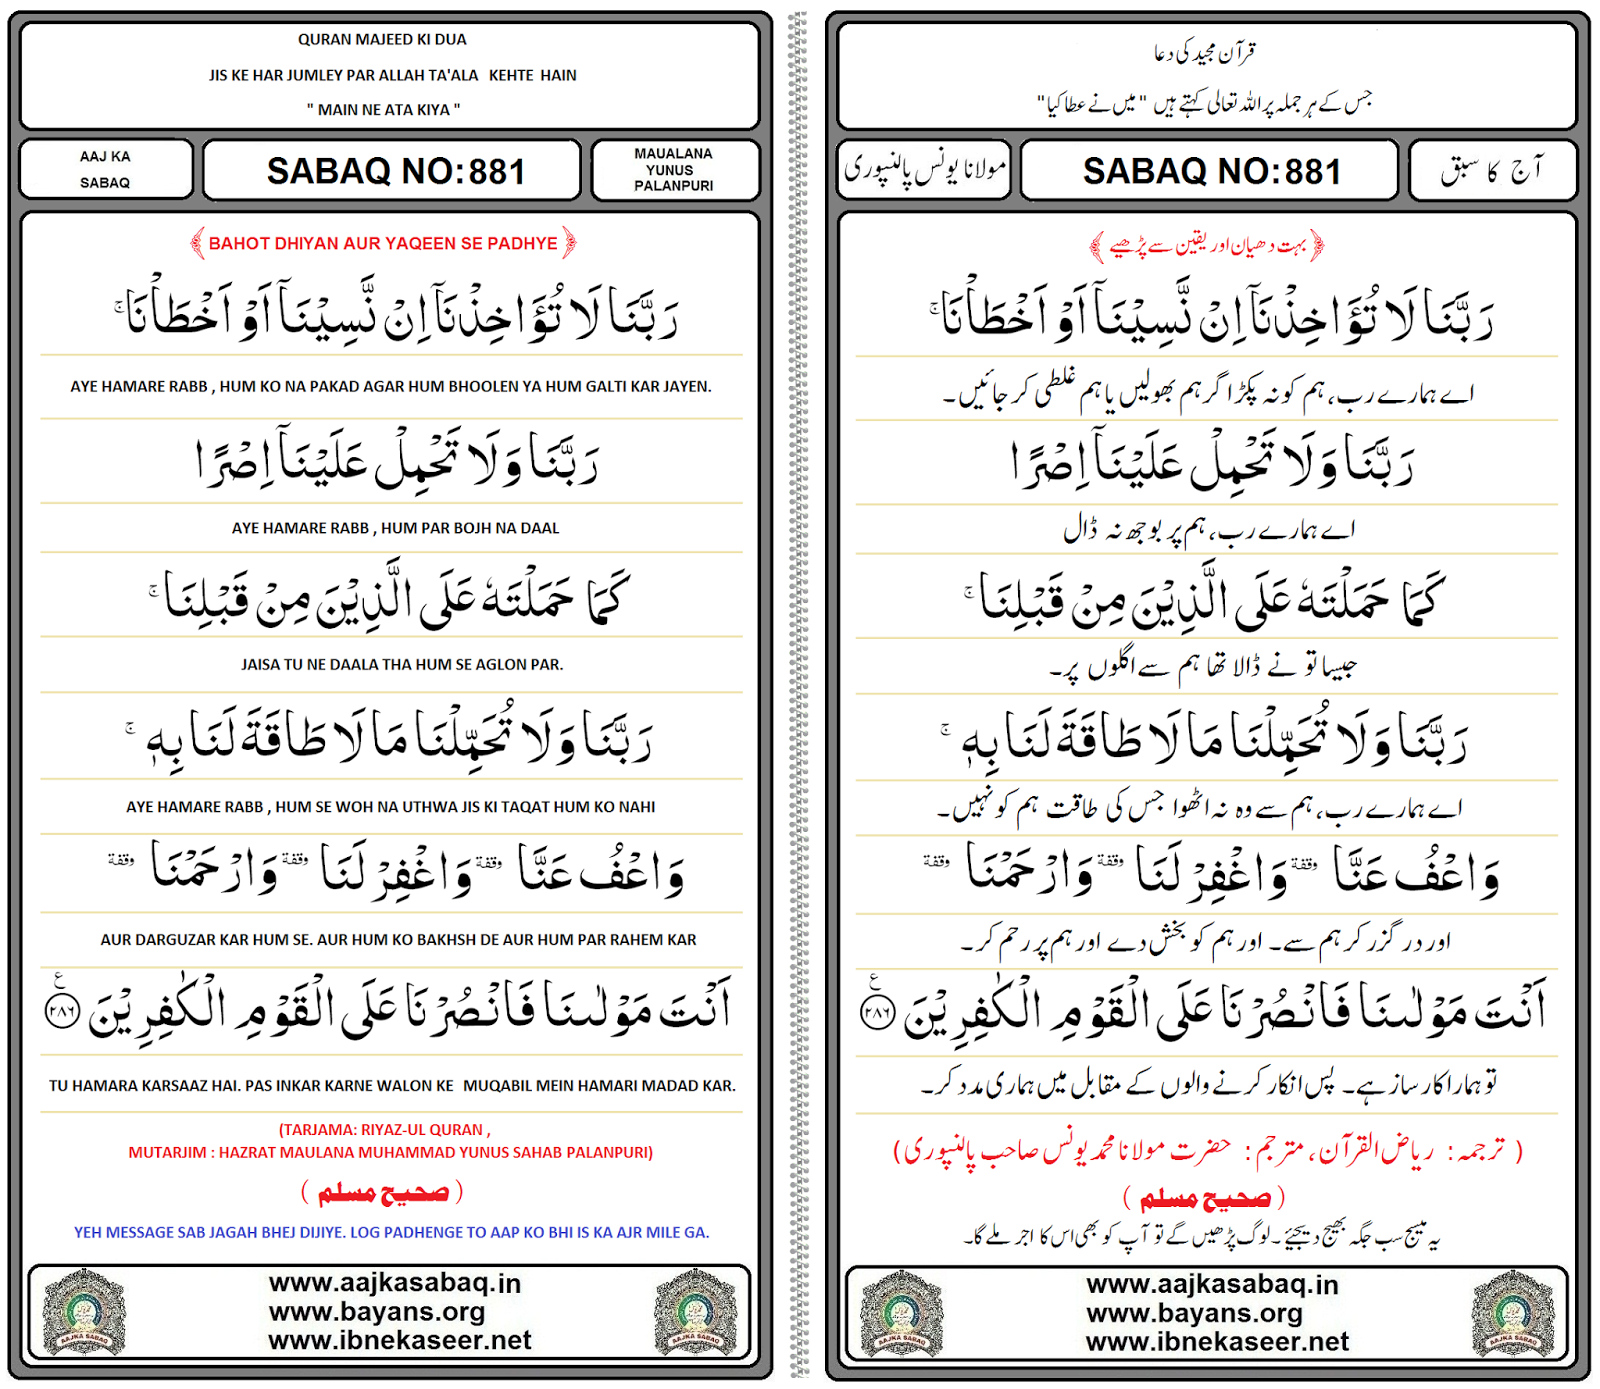 QURAN MAJEED KI DUA
JIS KE HAR JUMLEY PAR ALLAH TA'ALA KEHTE HAIN
" MAIN NE ATA KIYA "
AAJ KA
SABAQ
SABAQ NO:881
MAUALANA
YUNUS
PALANPURI
BAHOT DHIYAN AUR YAQEEN SE PADHYE
رَبَّنَا لَا تُؤَاخِذْنَآ اِنْ نَّسِيْنَآ اَوْ اَخْطَاْنَا ۚ
AYE HAMARE RABB , HUM KO NA PAKAD AGAR HUM BHOOLEN YA HUM GALTI KAR JAYEN.
رَبَّنَا وَلَا تَحْمِلْ عَلَيْنَآ اِصْرًا
AYE HAMARE RABB , HUM PAR BOJH NA DAAL
كَمَا حَمَلْتَهٗ عَلَى الَّذِيْنَ مِنْ قَبْلِنَا ۚ
JAISA TU NE DAALA THA HUM SE AGLON PAR.
رَبَّنَا وَلَا تُحَمِّلْنَا مَا لَا طَاقَةَ لَنَا بِهٖ ۚ
AYE HAMARE RABB , HUM SE WOH NA UTHWA JIS KI TAQAT HUM KO NAHI
وَاعْفُ عَنَّا وقفة وَاغْفِرْ لَنَا وقفة وَارْحَمْنَا وقفة
AUR DARGUZAR KAR HUM SE. AUR HUM KO BAKHSH DE AUR HUM PAR RAHEM KAR
اَنْتَ مَوْلٰىنَا فَانْصُرْنَا عَلَى الْقَوْمِ الْكٰفِرِيْنَ ۝٢٨٦ ع
TU HAMARA KARSAAZ HAI. PAS INKAR KARNE WALON KE MUQABIL MEIN HAMARI MADAD KAR.
(TARJAMA: RIYAZ-UL QURAN ,
MUTARJIM : HAZRAT MAULANA MUHAMMAD YUNUS SAHAB PALANPURI)
( صحیح مسلم )
YEH MESSAGE SAB JAGAH BHEJ DIJIYE. LOG PADHENGE TO AAP KO BHI IS KA AJR MILE GA.
www.aajkasabaq.in
www.bayans.org
www.ibnekaseer.net
AAJKA SABAQ
AAJKA SABAQ
قرآن مجید کی دعا
جس کے ہر جملہ پر اللہ تعالی کہتے ہیں "میں نے عطا کیا"
آج کا سبق
SABAQ NO:881
مولانا یونس پالنپوری
بہت دھیان اور یقین سے پڑھیے
رَبَّنَا لَا تُؤَاخِذْنَآ اِنْ نَّسِيْنَآ اَوْ اَخْطَاْنَا ۚ
اے ہمارے رب، ہم کو نہ پکڑ اگر ہم بھولیں یا ہم غلطی کر جائیں۔
رَبَّنَا وَلَا تَحْمِلْ عَلَيْنَآ اِصْرًا
اے ہمارے رب، ہم پر بوجھ نہ ڈال
كَمَا حَمَلْتَهٗ عَلَى الَّذِيْنَ مِنْ قَبْلِنَا ۚ
جیسا تو نے ڈالا تھا ہم سے اگلوں پر۔
رَبَّنَا وَلَا تُحَمِّلْنَا مَا لَا طَاقَةَ لَنَا بِهٖ ۚ
اے ہمارے رب، ہم سے وہ نہ اٹھوا جس کی طاقت ہم کو نہیں۔
وَاعْفُ عَنَّا وقفة وَاغْفِرْ لَنَا وقفة وَارْحَمْنَا وقفة
اور در گزر کر ہم سے۔ اور ہم کو بخش دے اور ہم پر رحم کر۔
اَنْتَ مَوْلٰىنَا فَانْصُرْنَا عَلَى الْقَوْمِ الْكٰفِرِيْنَ ۝٢٨٦ ع
تو ہمارا کارساز ہے۔ پس انکار کرنے والوں کے مقابل میں ہماری مدد کر۔
( ترجمہ: ریاض القرآن، مترجم: حضرت مولانا محمد یونس صاحب پالنپوری)
( صحیح مسلم )
یہ میسج سب جگہ بھیج دیجئیے۔ لوگ پڑھیں گے تو آپ کو بھی اس کا اجر ملے گا۔
www.aajkasabaq.in
www.bayans.org
www.ibnekaseer.net
AAJKA SABAQ
AAJKA SABAQ